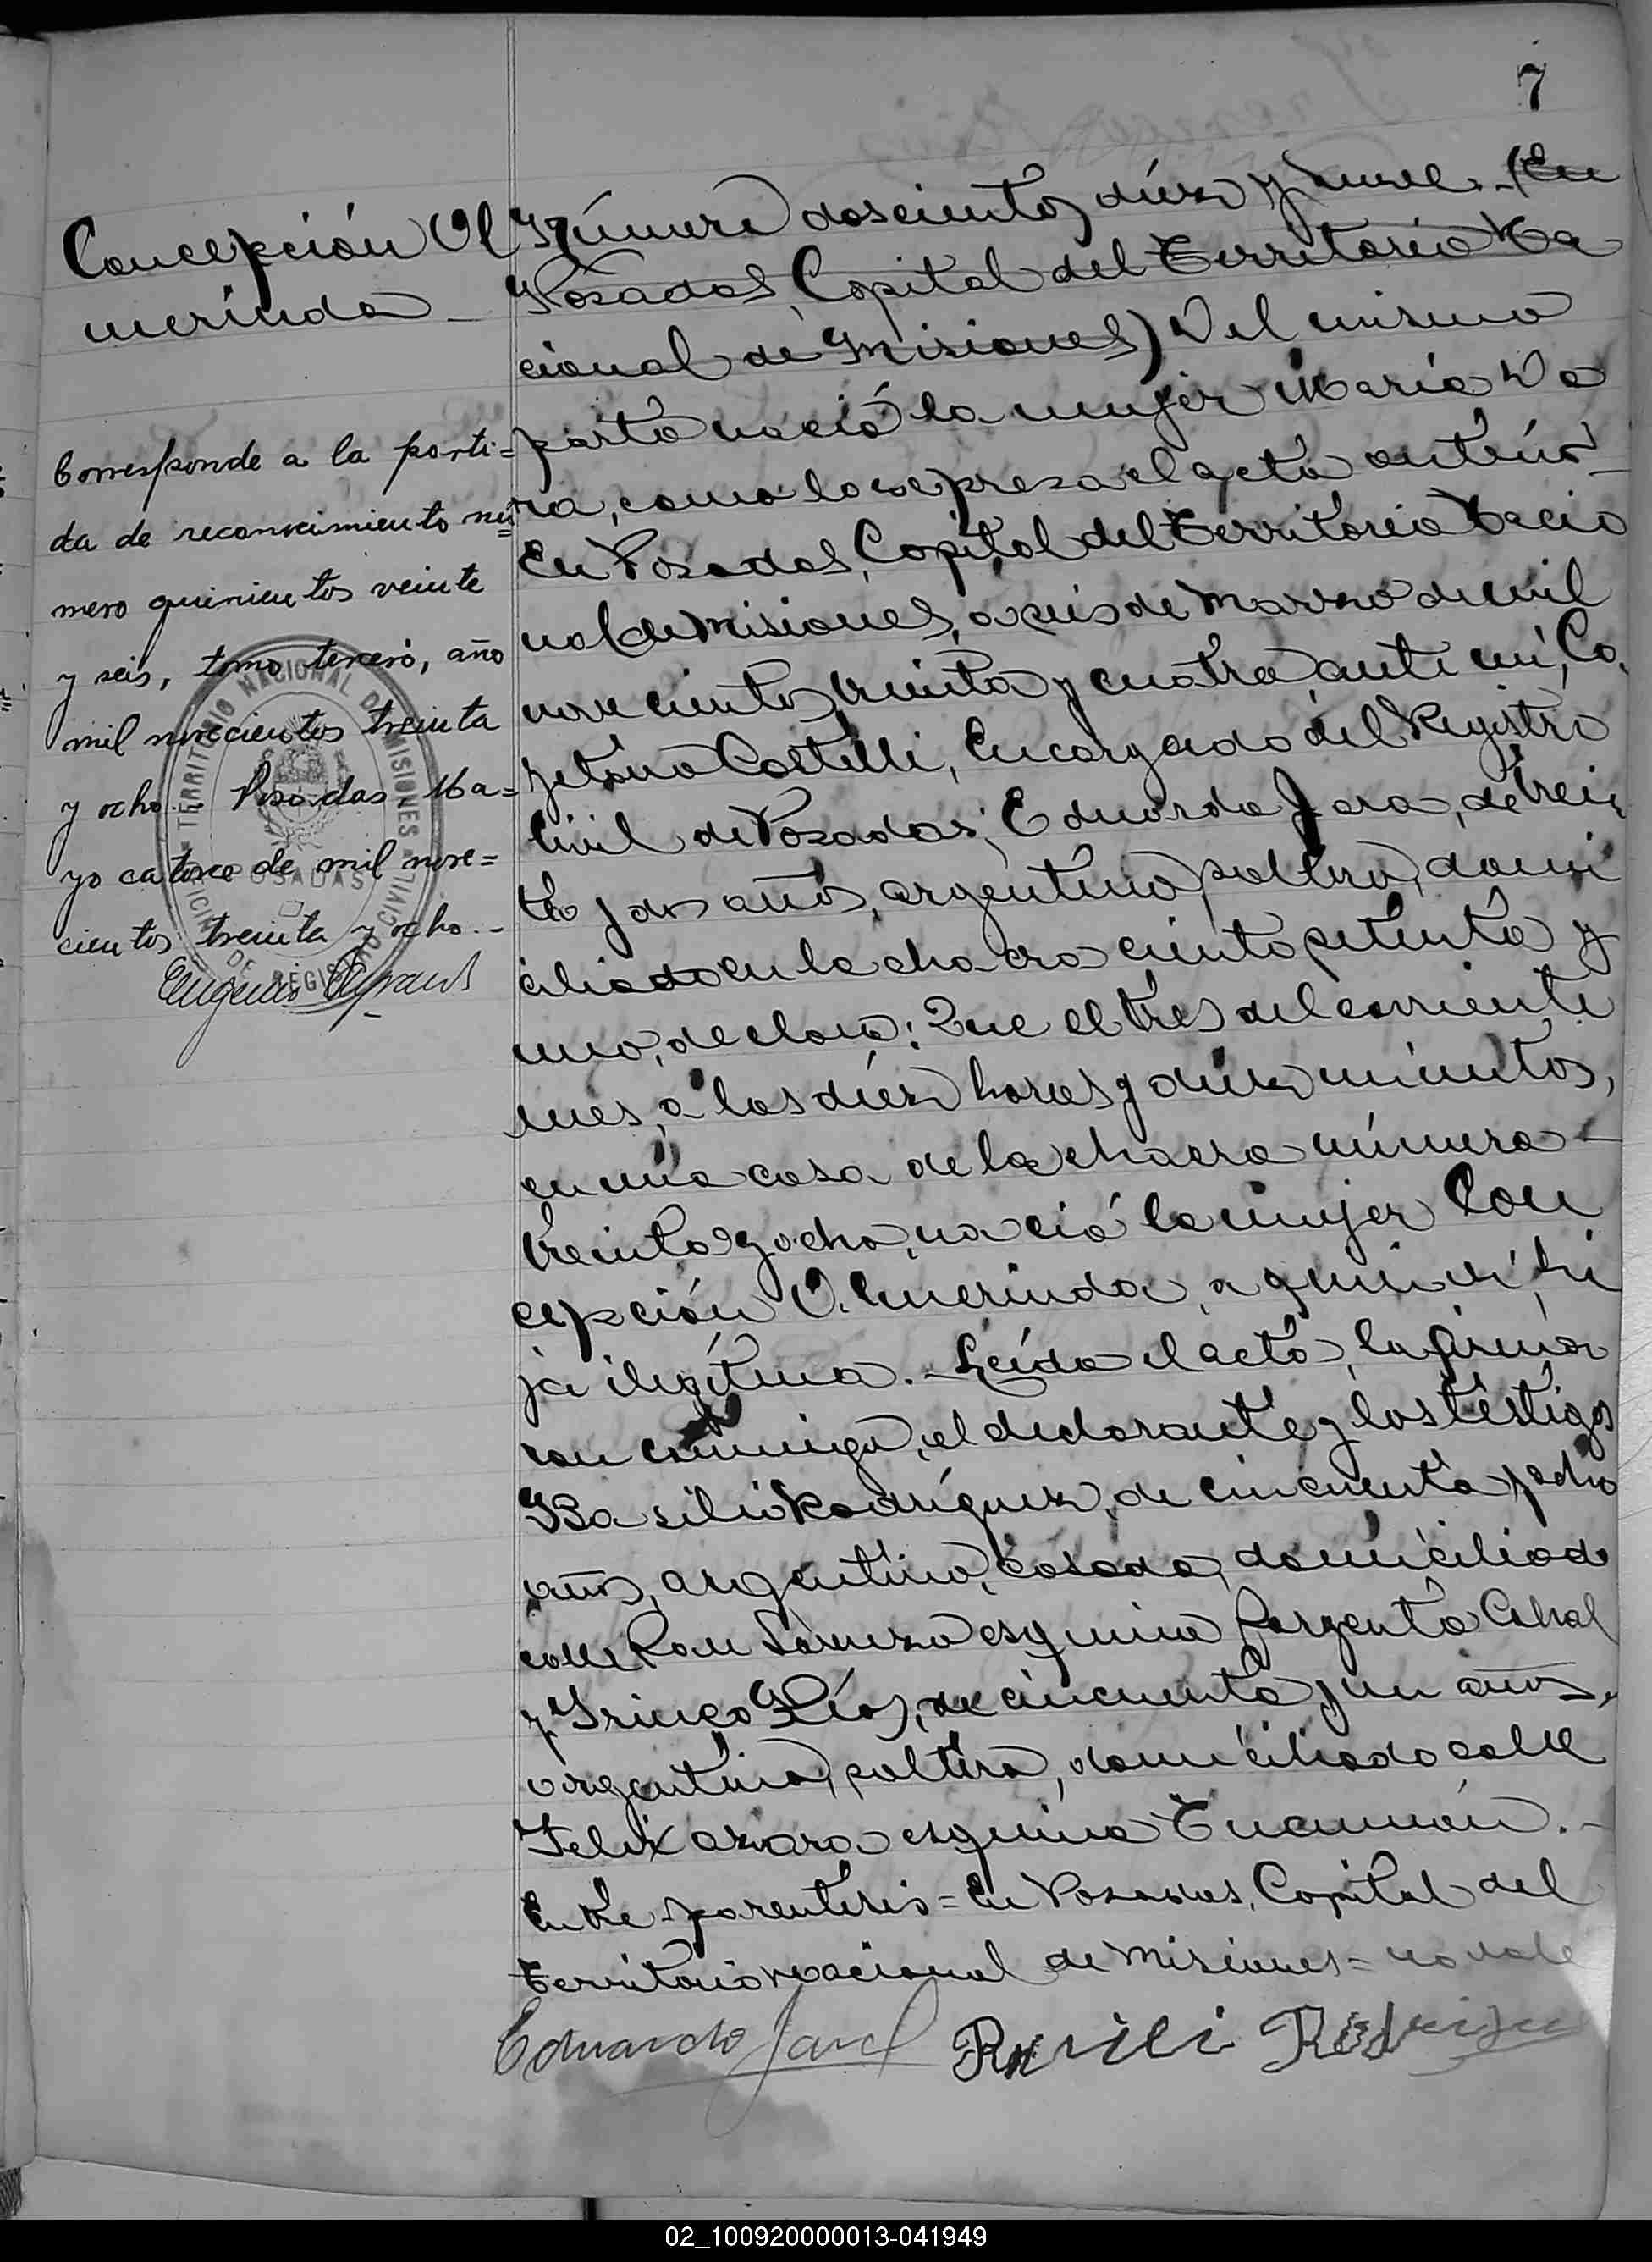 7
Concepción Ol
merinda -
Número doscientos diéz y nueve. - (En
Posadas, Capital del Territorio Na
cional de Misiones) Del mismo
parto nació la mujer María
ra, como lo expresa el acta anterior -
En Posadas, Capital del Territorio Nacio
nal de Misiones, a seis de Marzo de mil
novecientos treinta y cuatro, ante mí, Ca
yetano Castelli, Encargado del Registro
Civil de Posadas; Eduardo Jara, de trein
ta y dos años, argentino, soltero, domi
ciliado en la chacra ciento setenta y
uno, declara: Que el tres del corriente
mes, a las diéz horas y diéz minutos,
en una casa de la chacra número -
treinta y ocho, nació la mujer Con
cepción Olmerinda, a quien vi, hi
ja ilegítima. - Leída el acta, la firma
ron conmigo, el declarante y los testigos
Basilio Rodríguez, de cincuenta y ocho
años, argentino, casado, domiciliado
calle San Lorenzo esquina Sargento Cabral
y Irineo Ríos, de cincuenta y un años,
argentino, soltero, domiciliado calle
Felix Azara esquina Tucumán. -
Entre paréntesis = En Posadas, Capital del
Territorio Nacional de Misiones = no vale
Eduardo Jara Basilio Rodriguez
Corresponde a la parti=
da de reconocimiento nú=
mero quinientos veinte
y seis, tomo tercero, año
mil novecientos treinta
y ocho. - Posadas Ma=
yo catorce de mil nove=
cientos treinta y ocho. -
Eugenio
TERRITORIO NACIONAL DE MISIONES
POSADAS
OFICINA DE REGISTRO CIVIL
02_100920000013-041949